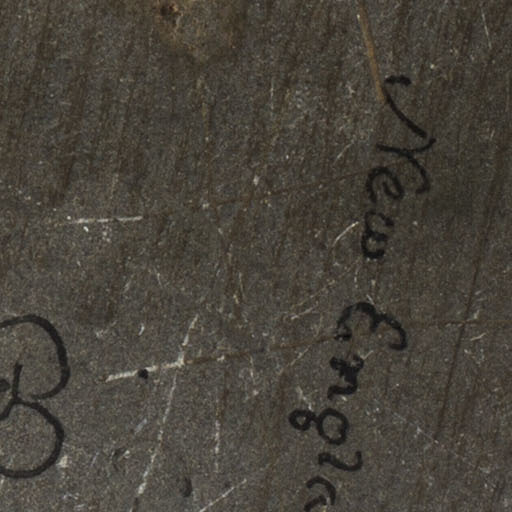 New Engla
B